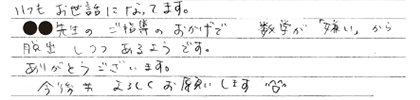 いつも お世話になってます。
●●先生の ご指導の おかげで 数学が 「嫌い」から
脱出 しつつ あるようです。
ありがとうございます。
今後も よろしく お願いします ^o^